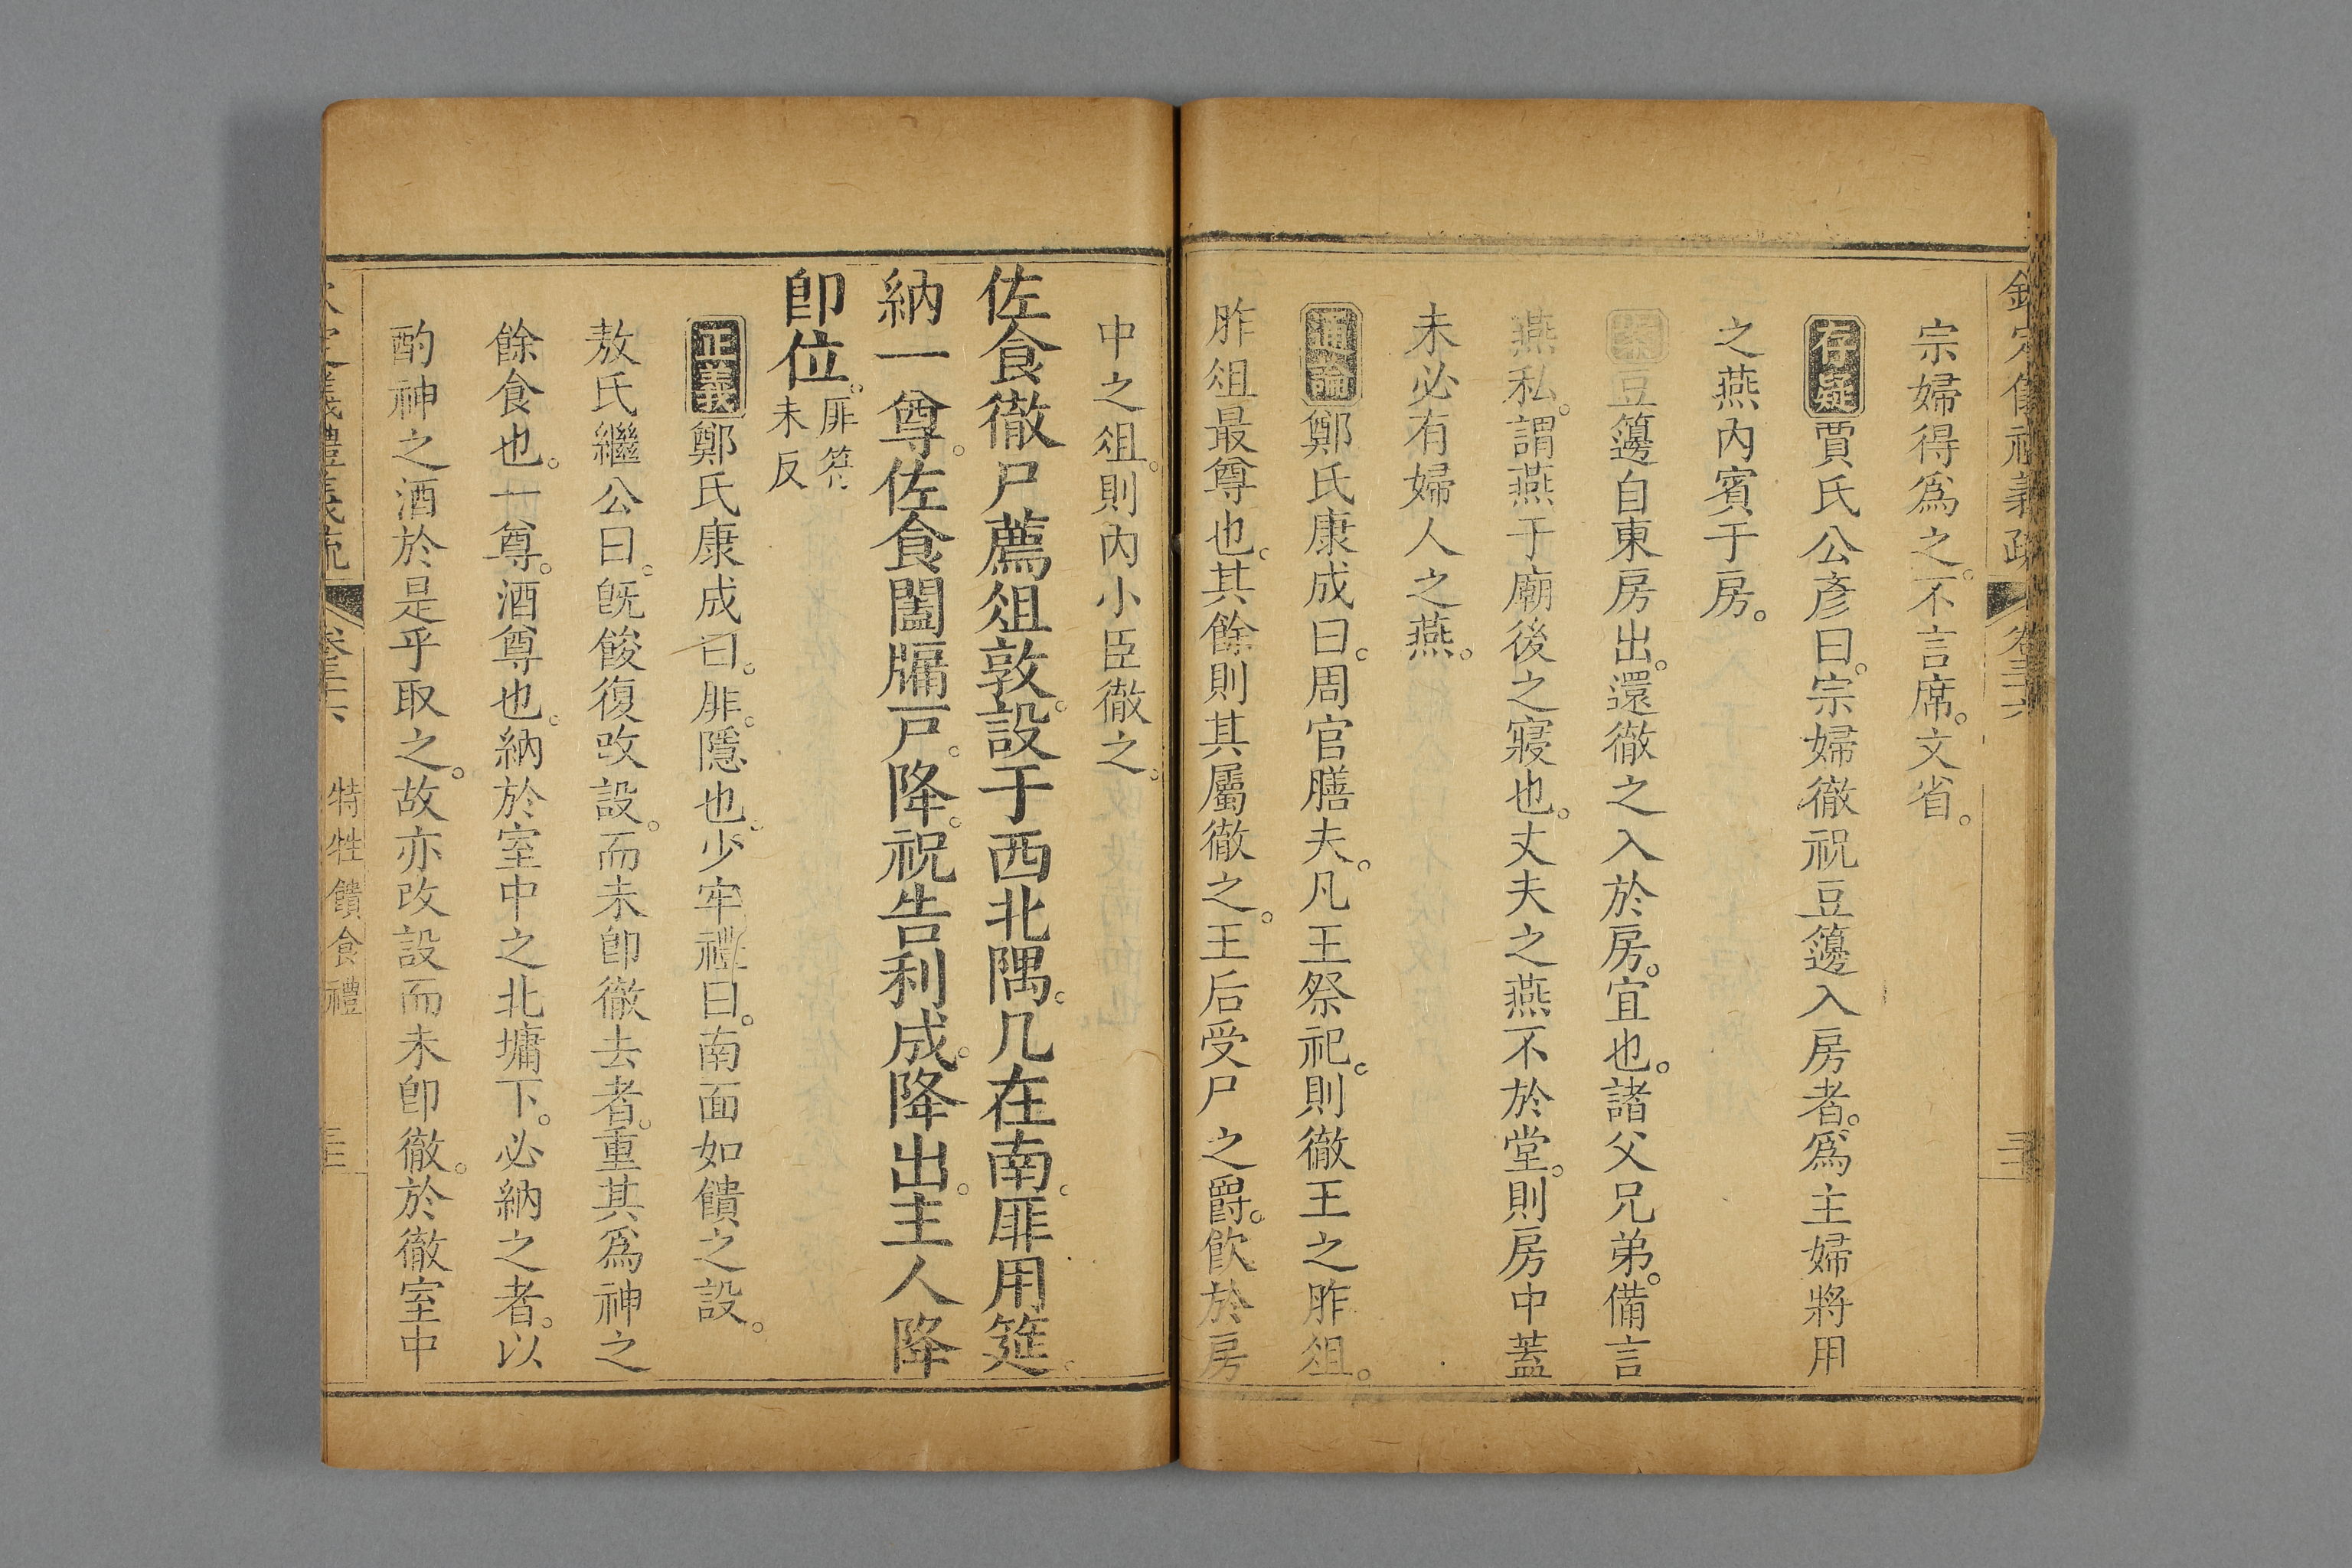 欽定儀禮義疏 卷三十六
宗婦得爲之。不言席。文省。
存疑賈氏公彥曰。宗婦徹祝豆籩入房者。爲主婦將用
之燕內賓于房。
案豆籩自東房出。還徹之入於房。宜也。諸父兄弟。備言
燕私。謂燕于廟後之寢也。丈夫之燕不於堂。則房中蓋
未必有婦人之燕。
通論鄭氏康成曰。周官膳夫。凡王祭祀。則徹王之胙俎。
胙俎最尊也。其餘則其屬徹之。王后受尸之爵。飮於房
中之俎。則內小臣徹之。
佐食徹尸薦俎敦。設于西北隅。几在南。厞用筵。
納一尊。佐食闔牖戸。降。祝告利成。降出。主人降
卽位。厞符
未反
正義鄭氏康成曰。厞。隱也。少牢禮曰。南面如饋之設。
敖氏繼公曰。旣餕復改設。而未卽徹去者。重其爲神之
餘食也。一尊。酒尊也。納於室中之北墉下。必納之者。以
酌神之酒於是乎取之。故亦改設而未卽徹。於徹室中
欽定儀禮義疏 卷三十六 特牲饋食禮